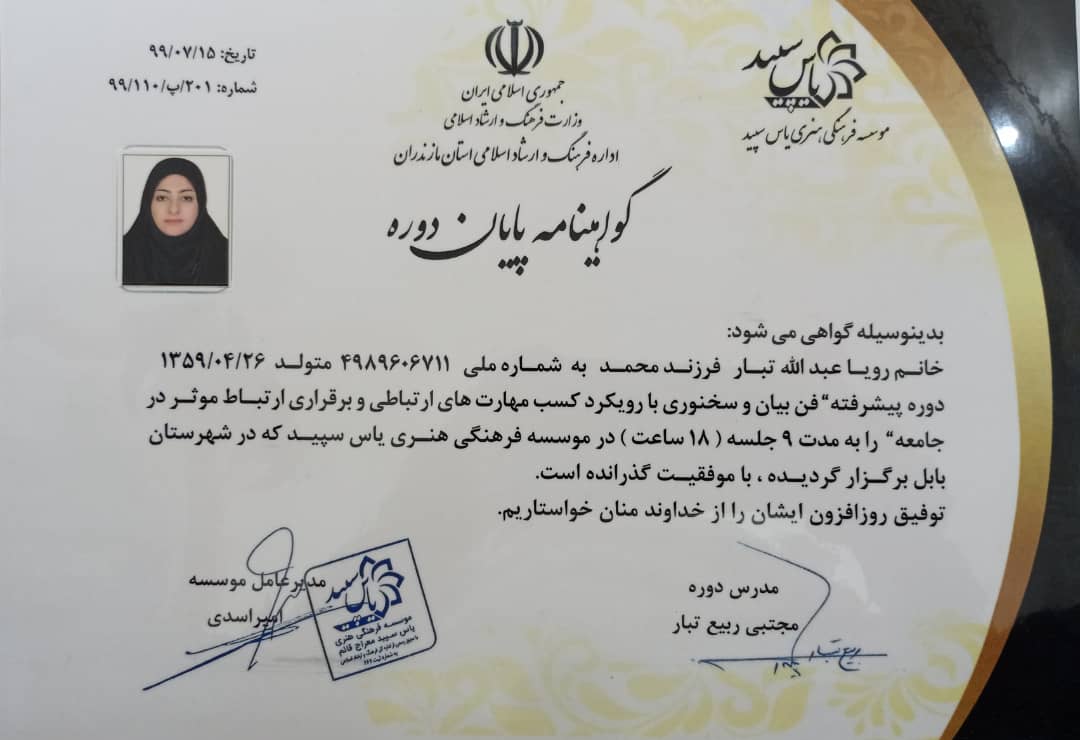 تاریخ: ۹۹/۰۷/۱۵
شماره: ۲۰۱/پ/۹۹/۱۱۰
جمهوری اسلامی ایران
وزارت فرهنگ و ارشاد اسلامی
اداره فرهنگ و ارشاد اسلامی استان مازندران
یاس سپید
موسسه فرهنگی هنری یاس سپید
گواهینامه پایان دوره
بدینوسیله گواهی می شود:
خانم رویا عبدالله تبار فرزند محمد به شماره ملی ۴۹۸۹۶۰۶۷۱۱ متولد ۱۳۵۹/۰۴/۲۶
دوره پیشرفته“ فن بیان و سخنوری با رویکرد کسب مهارت های ارتباطی و برقراری ارتباط موثر در
جامعه“ را به مدت ۹ جلسه ( ۱۸ ساعت ) در موسسه فرهنگی هنری یاس سپید که در شهرستان
بابل برگزار گردیده ، با موفقیت گذرانده است.
توفیق روزافزون ایشان را از خداوند منان خواستاریم.
مدرس دوره
مجتبی ربیع تبار
ربیع تبار
مدیرعامل موسسه
امیراسدی
یاس سپید
موسسه فرهنگی هنری
یاس سپید معراج قائم